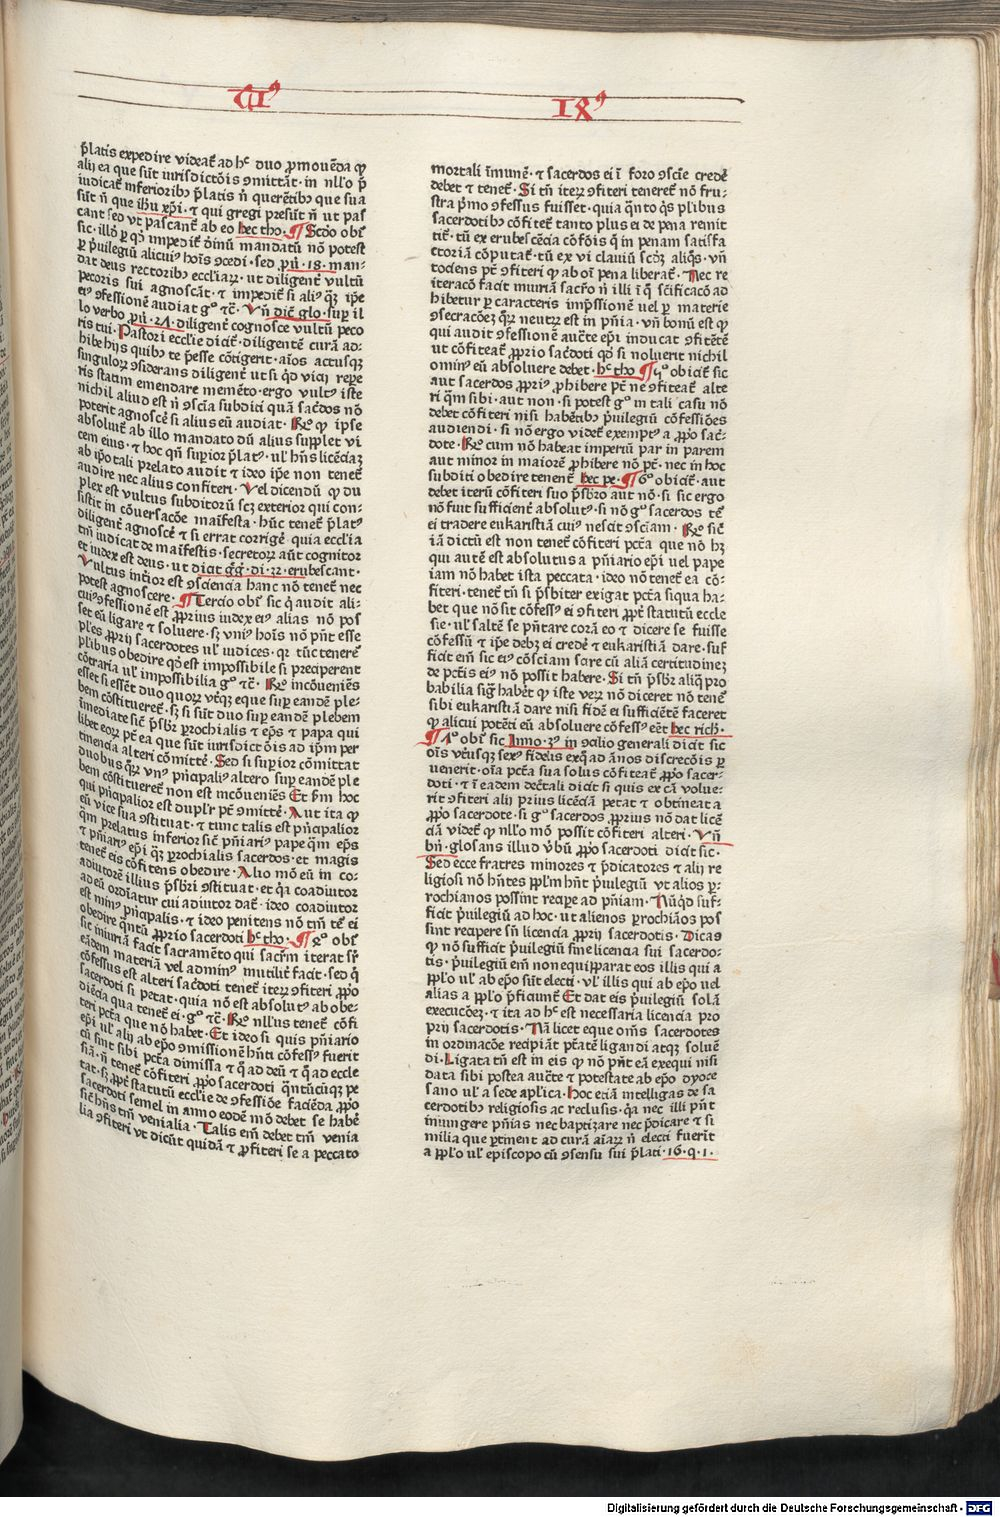 VIꝰ IXꝰ
p̄latis expedire videat̄ ad hͨ duo ꝓmouēda ꝙ
alij ea que sūt iurisdictōis ꝯmittāt· in nll̄o p̄
iudicat̄ inferioribꝫ p̄latis n̄ querētibꝫ que sua
sūt n̄ que ih̄u xp̄i· ⁊ qui gregi presūt n̄ ut pas
cant sed vt pascant̄ ab eo hec tho· ¶ Sc̄do obī
sic· illō ꝑ qͦ impedit̄ diuinū mandatū nō potest
ꝑ p̄uilegiū alicuiꝰ hoīs ꝯcedi· sed ꝓū· 18· man⸗
dat deus rectoribꝫ eccl̄iaꝝ· ut diligent̄ vultū
pecoris sui agnoscāt· ⁊ impedit̄ si aliꝰ ꝗꝫ ip̄e
eiꝰ ꝯfessionē audiat gͦ ⁊c̄· Vn̄ dic̄ glo· suꝑ il
lo verbo ꝓū· 27· diligent̄ cognosce vultū peco
ris tui· Pastori eccl̄ie dicit̄· diligentē curā ad⸗
hibe hijs quibꝫ te p̄esse cōtigerit· aīos actusqꝫ
singuloꝝ ꝯsiderans diligent̄ ut si qͥd vicij repe
ris statim emendare memēto· ergo vultꝰ iste
nichil aliud est n̄ ꝯscīa subditi quā sac̄dos nō
poterit agnosc̄e si alius eū audiat· R̄o ꝙ ipse
absoluit̄ ab illo mandato dū alius supplet vi
cem eius· ⁊ hoc qn̄ suꝑior p̄latꝰ· ul̓ hn̄s licēciaꝫ
ab ip̄o tali prelato audit ⁊ ideo ip̄e non tenet̄
audire nec alius confiteri· Vel dicendū ꝙ du
plex est vultus subditorū scꝫ exterior qui con⸗
sistit in cōuersacōe maīfesta· hūc tenet̄ p̄latꝰ
diligent̄ agnosc̄e ⁊ si errat corrige quia eccl̄ia
tm̄ iudicat de maīfestis· secretoꝝ aūt cognitor
et iudex est deus· ut dicit gg̓· di· 32· erubescant·
Vultus int̄ior est ꝯsciencia hanc nō tenet̄ nec
potest agnoscere· ¶ Tercio obī sic q̇ audit ali⸗
cuiꝰ ꝯfessionē est ꝓprius iudex eiꝰ alias nō pos
set eū ligare ⁊ soluere· sꝫ vniꝰ hoīs nō pn̄t esse
pl̄es ꝓprij sacerdotes ul̓ iudices· qꝛ tūc tenere
plibus obedire qd̄ est impossibile si preciperent
cōtraria ul̓ impossibilia gͦ ⁊c̄· R̄o incōueniēs
esset si essēt duo quoꝝ vtꝗꝫ eque suꝑ eandē ple⸗
bem cōstitueret̄· sꝫ si sūt duo suꝑ eandē plebem
imediate sic̄ p̄sbr̄ ꝓchialis ⁊ ep̄s ⁊ papa qui
libet eoꝝ pt̄ ea que sūt iurisdictōis ad ip̄m per
tinencia alteri cōmitte· Sed si suꝑior cōmittat
duobus qꝝ vnꝰ pn̄cipaliꝰ altero suꝑ eandē ple
bem cōstitueret̄ non est incōueniēs Et hīm hoc
qui pn̄cipalior est dupl̓r pt̄ ꝯmitte· Aut ita ꝙ
eū vice sua ꝯstituat· ⁊ tunc talis est pn̄cipalior
qm̄ prelatus inferior sic̄ pn̄iariꝰ pape qm̄ ep̄s
⁊ pn̄iariꝰ ep̄i qͣꝫ ꝓchialis sacerdos· et magis
tenet̄ eis cōfitens obedire· Alio mō eū in co⸗
adiutorē illius p̄sbr̄i ꝯstituat· et qͣ coadiutor
ad eū ordīatur cui adiutor dat̄· ideo coadiutor
est minꝰ pn̄cipalis· ⁊ ideo penitens nō tm̄ te̓ ei
obedire qͥntū ꝓprio sacerdoti hͨ tho· ¶ 4ͦ obī
sic iniuriā facit sacramēto qui sacr̄m iterat sꝑ
eādem materiā vel ad minꝰ inutilit̄ facit· sed q̇
cōfessus est alteri sac̄doti tenet̄ iteꝝ ꝯfiteri ꝓpo
sacerdoti si petat· quia nō est absolutꝰ ab obe⸗
diēcia qua tenet̄ ei· gͦ ⁊c̄· R̄o nll̄us tenet̄ cōfi
teri pct̄a que nō habet· Et ideo si quis pn̄iario
ep̄i ul̓ alij ab ep̄o ꝯmissionē hn̄ti cōfessꝰ fuerit
cū sint sibi pct̄a dimissa ⁊ q̇ ad deū ⁊ q̇ ad eccle
siā· n̄ tenet̄ cōfiteri ꝓpo sacerdoti qͥntūcūꝗꝫ pe
tat· sꝫ ꝓpt̄ statutū eccl̄ie de ꝯfessiōe faciēda ꝓpo
sacerdoti semel in anno eodē mō debet se habe
sic̄ hn̄s tm̄ venialia· Talis em̄ debet tm̄ venia
lia ꝯfiteri vt dicūt quidā ⁊ ꝓfiteri se a peccato
mortali īmunē· ⁊ sacerdos ei ī foro ꝯscīe crede
debet ⁊ tenet̄· Si tn̄ iteꝝ ꝯfiteri teneret̄ nō fru⸗
stra pͥmo ꝯfessus fuisset· quia qͥnto qͥs pl̄ibus
sacerdotibꝫ cōfitet̄ tanto plus ei de pena remit
tit̄· tū ex erubescēcia cōfōis q̇ in penam satisfa
ctoriā cōputat̄· tū ex vi clauiū scd̄ꝫ aliqͦs· vn̄
tociens pt̄ ꝯfiteri ꝙ ab oī pena liberat̄· Nec re
iteracō facit iniuriā sacr̄o n̄ illi ī q̇ sc̄ificacō ad
hibetur ꝑ caracteris imp̄ssionē uel ꝑ materie
ꝯsecracōeꝫ qꝝ neutꝝ est in pn̄ia· vn̄ bonū est ꝙ
qui audit ꝯfessionē auc̄te ep̄i inducat ꝯfitētē
ut cōfiteat̄ ꝓprio sac̄doti qd̄ si noluerit nichil
ominꝰ eū absoluere debet· hͨ tho ¶ 5ͦ obicit̄ sic
aut sacerdos ꝓpriꝰ ꝓhibere pt̄ ne ꝯfiteat̄ alte
ri qm̄ sibi· aut non· si potest gͦ in tali casu nō
debet cōfiteri nisi habētibꝫ p̄uilegiū cōfessiōes
audiendi· si nō ergo videt̄ exemptꝰ a ꝓpo sac̄⸗
dote· R̄o cum nō habeat imperiū par in parem
aut minor in maiorē ꝓhibere nō pt̄· nec in hoc
subditi obedire tenent̄ hec pe· ¶ 6ͦ obicit̄· aut
debet iterū cōfiteri suo p̄sb̄ro aut nō· si sic ergo
nō fuit sufficient̄ absolutꝰ· si nō gͦ sacerdos te̓
ei tradere eukaristiā cuiꝰ nescit ꝯsciam· R̄o sic̄
iā dictū est non tenet̄ cōfiteri pct̄a que nō hꝫ
qui autē est absolutus a pn̄iario ep̄i uel pape
iam nō habet ista peccata· ideo nō tenet̄ ea cō⸗
fiteri· tenet̄ tn̄ si p̄sbiter exigat pct̄a siqua ha⸗
bet que nō sit cōfessꝰ ei ꝯfiteri ꝓpt̄ statutū eccle
sie· ul̓ saltē se pn̄tare corā eo ⁊ dicere se fuisse
cōfessū ⁊ ip̄e debꝫ ei crede ⁊ eukaristiā dare· suf
ficit em̄ sic eiꝰ cōsciam scire cū aliā certitudineꝫ
de pct̄is eiꝰ nō possit habere· Si tn̄ p̄sbr̄ aliq̇ ꝓro
babilia sig̓ habet ꝙ iste veꝝ nō diceret nō tene
sibi eukaristiā dare nisi fidē ei sufficiētē faceret
ꝙ alicui potēti eū absoluere cōfessꝰ eēt hec rich·
¶ 7ͦ obī sic Inno· 3ꝰ in ꝯcilio generali dicit sic
oīs vtͥusqꝫ sexꝰ fidelis exq̇ ad ānos discrecōis ꝑ
uenerit· oīa pct̄a sua solus cōfiteat̄ ꝓpo sacer⸗
doti· ⁊ ī eadem dec̄tali dicit si quis ex cā volue⸗
rit ꝯfiteri alij prius licēciā petat ⁊ obtineat a
ꝓpo sacerdote· si gͦ sacerdos ꝓprius nō dat licē
ciā videt̄ ꝙ nll̄o mō possit cōfiteri alteri· Vn̄
bn̄· glosans illud v̄bū ꝓpo sacerdoti dicit sic·
Sed ecce fratres minores ⁊ p̄dicatores ⁊ alij re
ligiosi nō hn̄tes pp̄lm hn̄t p̄uilegiū vt alios ꝑ⸗
rochianos possint recipe ad pn̄iam· Nūqͥd suf⸗
ficit p̄uilegiū ad hoc· ut alienos ꝑrochiāos pos
sint recipere sn̄ licencia ꝓprij sacerdotis· Dicas
ꝙ nō sufficit p̄uilegiū sine licencia sui sacerdo⸗
tis· p̄uilegiū em̄ non equiꝑarat eos illis qui a
pp̄lo ul̓ ab ep̄o sūt electi· vl̓ illis qui ab ep̄o uel
alias a pp̄lo p̄ficiunt̄ Et dat eis p̄uilegiū solā
execucōeꝫ· ⁊ ita ad hͨ est necessaria licencia pro
prij sacerdotis· Nā licet eque om̄s sacerdotes
in ordinacōe recipiāt ptātē ligandi atqꝫ solue
di· Ligata tn̄ est in eis ꝙ nō pn̄t eā exequi nisi
data sibi postea auc̄te ⁊ potestate ab ep̄o dyoce
sano ul̓ a sede ap̄lica· Hoc etiā intelligas de sa
cerdotibꝫ religiosis ac reclusis· qͣ nec illi pn̄t
iniungere pn̄ias nec baptizare nec p̄dicare ⁊ si
milia que ꝑtinent ad curā aīaꝝ n̄ electi fuerīt
a pp̄lo ul̓ episcopo cū ꝯsensu sui p̄lati· 16· q· 1·
Digitalisierung gefördert durch die Deutsche Forschungsgemeinschaft · DFG